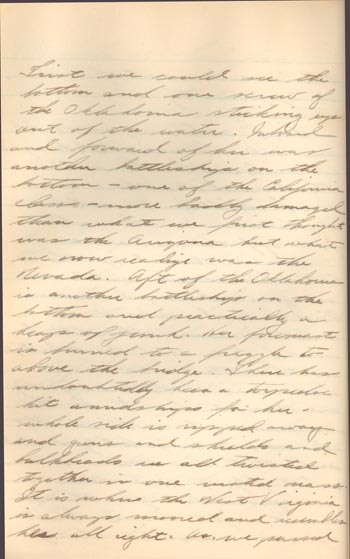 First we could see the
bottom and one screw of
the Oklahoma sticking up
out of the water. Inboard
and forward of her was
another battleship on the
bottom - one of the California
class - more badly damaged
than what we first thought
was the Arizona but what
we now realize was the
Nevada. Aft of the Oklahoma
is another battleship on the
bottom and practically a
heap of junk. Her foremast
is burned to a frazzle to
above the bridge. There has
undoubtably been a torpedo
hit amidships for her
whole side is ripped away
and guns and shields and
bulkheads are all twisted
together in one metal mass.
It is where the West Virginia
is always moored and resembles
her all right. As we passed